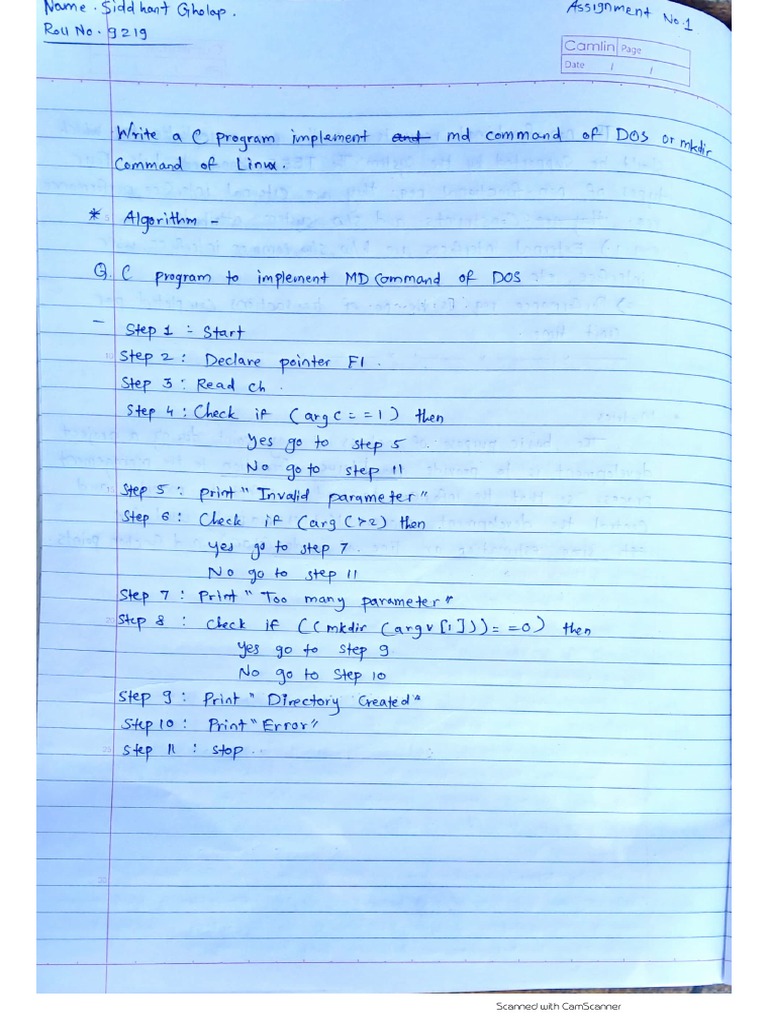 Name. Siddhant Gholap.
Assignment No.1
Roll No. 9219
Camlin Page
Date / /
Write a C program implement and md command of DOS or mkdir
Command of Linux.
* Algorithm -
Q. C program to implement MD Command of DOS.
- Step 1 : Start
Step 2 : Declare pointer F1.
Step 3 : Read ch.
Step 4 : Check if (argc==1) then
Yes go to step 5.
No go to step 11
Step 5 : print "Invalid parameter"
Step 6 : Check if (argc>2) then
Yes go to step 7.
No go to step 11
Step 7 : Print "Too many parameter"
Step 8 : Check if ((mkdir (argv[1]))==0) then
Yes go to step 9
No go to Step 10
Step 9 : Print "Directory Created"
Step 10 : Print "Error"
Step 11 : stop.
Scanned with CamScanner